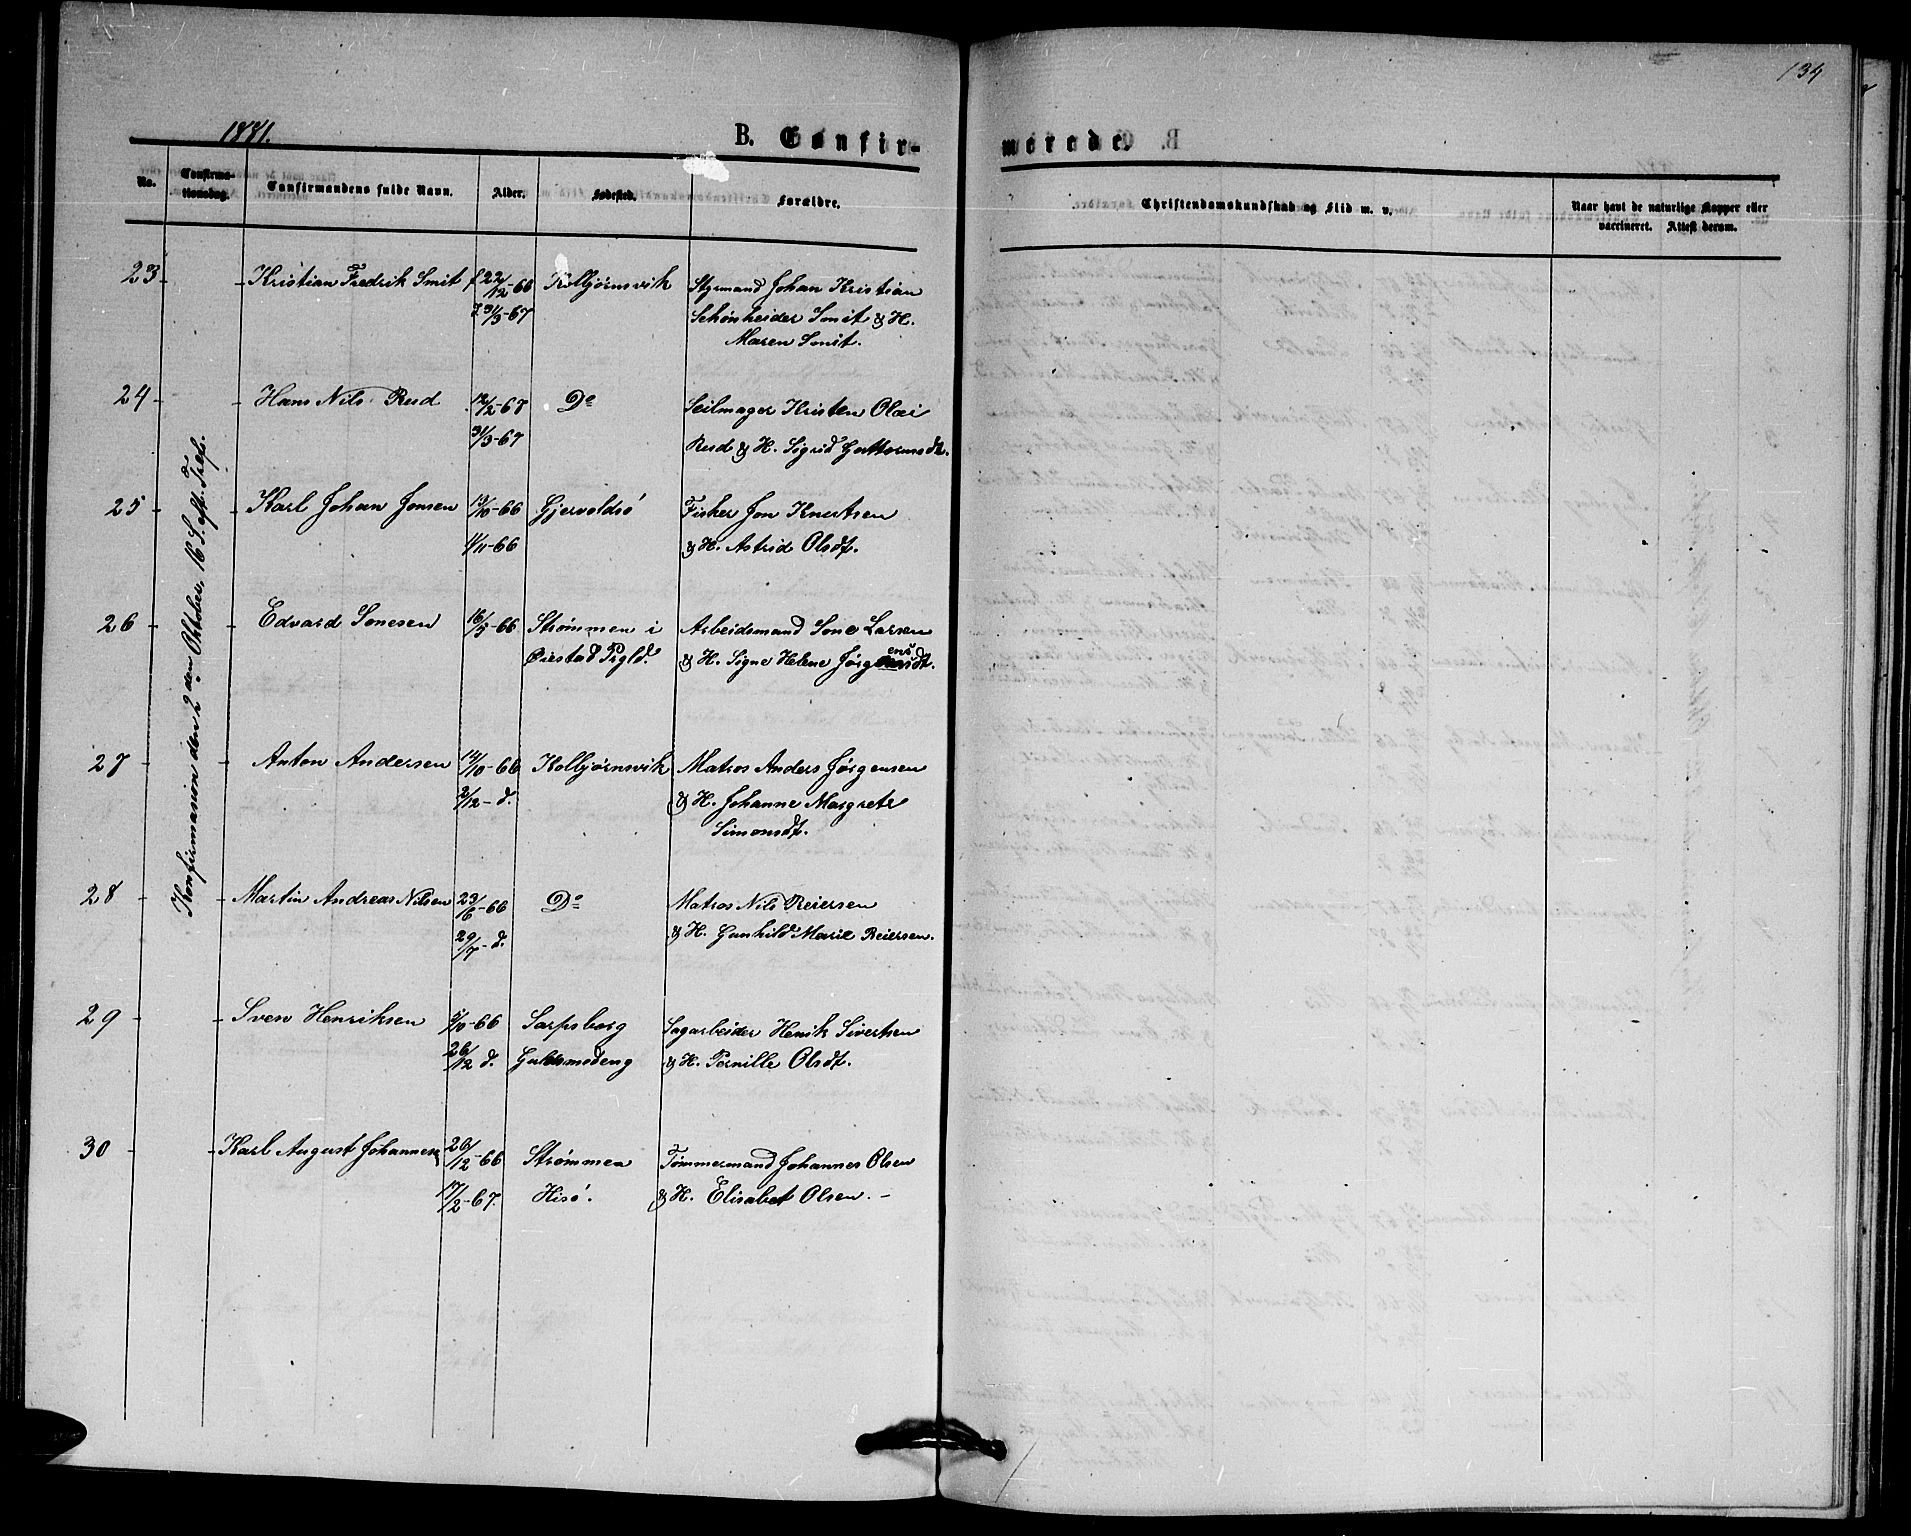 134
1881.
B. Confir-
merede.
No.
Confirma-
tionsdag.
Confirmandens fulde Navn.
Alder.
Fødested.
Forældre.
Christendomskundskab og Flid m. v.
Naar havt de naturlige Kopper eller
vaccineret. Attest derom.
Konfirmasion den 2den Oktober, 16 S. eft. Trefs.
23 - - Kristian Fredrik Smit f 22/12-66 Kolbjørnsvik Styrmand Johan Kristian
31/3-67 Schønheider Smit & H.
Maren Smit.
24 - - Hans Nils Rud 12/2-67 Do Seilmager Kristen Olai
31/3-67 Rud & H. Sigrid Guttormsdt.
25 - - Karl Johan Jonsen 13/10-66 Gjervoldsø Fisker Jon Knutsen
11/11-66 & H. Astrid Olsdt.
26 - - Edvard Sonesen 16/5-66 Strømmen i Arbeidsmand Sone Larsen
Øiestad Prgld. & H. Signe Helene Jørgensdt.
27 - - Anton Andersen 14/10-66 Kolbjørnsvik Matros Anders Jørgensen
2/12-d. & H. Johanne Margrete
Simonsdt.
28 - - Martin Andreas Nilsen 23/6-66 Do Matros Nils Reiersen
29/7-d. & H. Gunhild Marie Reiersen.
29 - - Sven Henriksen /10-66 Sarpsborg Sagarbeider Henrik Sivertsen
26/12 d. & H. Pernille Olsdt.
30 - - Karl August Johannesen 26/12-66 Strømmen Tømmermand Johannes Olsen
17/2-67. Hisø. & H. Elisabet Olsen. -